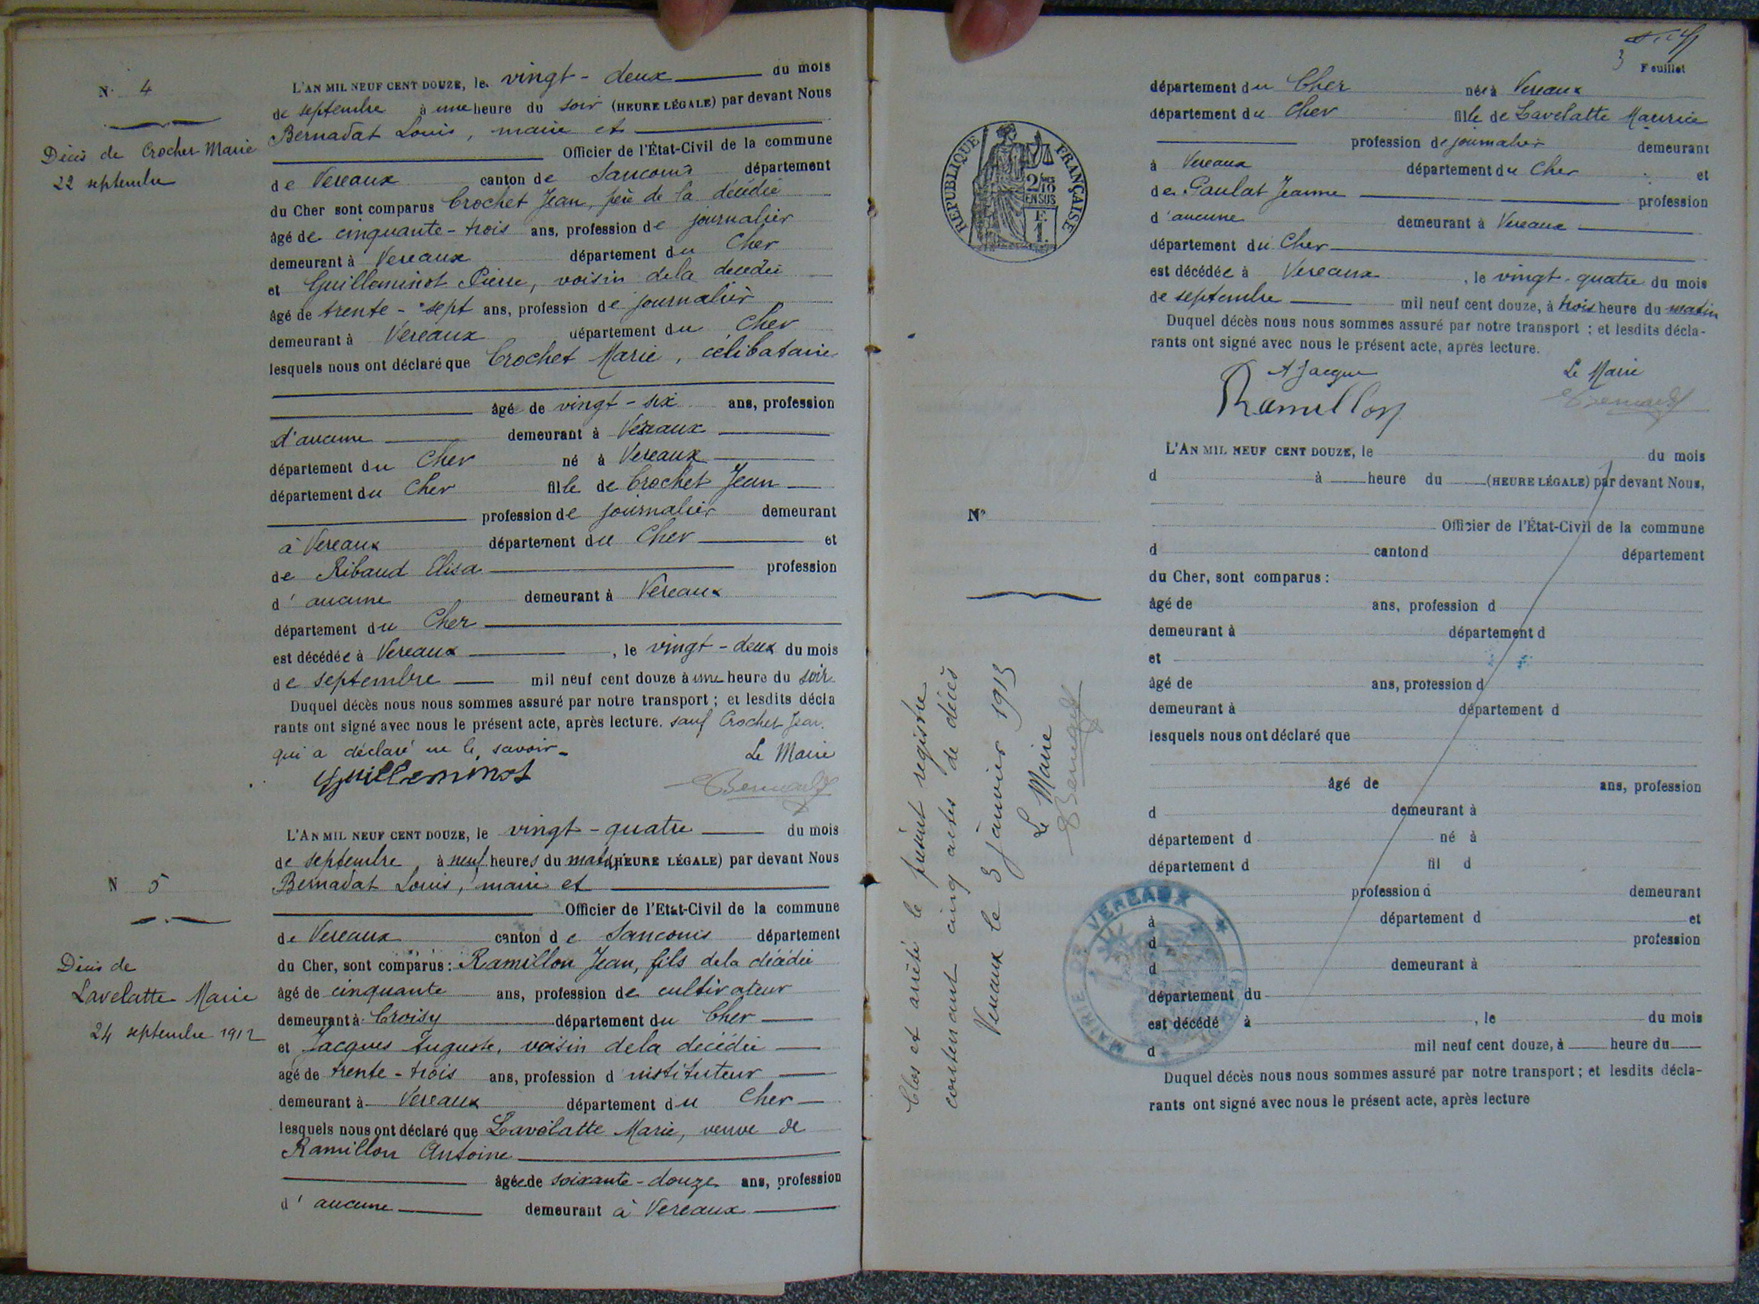 N° 4
Décès de Crochet Marie
22 septembre
L'AN MIL NEUF CENT DOUZE, le vingt-deux du mois
de septembre à une heure du soir (HEURE LÉGALE) par devant Nous
Bernadat Louis, maire et
Officier de l'État-Civil de la commune
de Vereaux canton de Sancoins département
du Cher sont comparus Crochet Jean, père de la décédée
âgé de cinquante-trois ans, profession de journalier
demeurant à Vereaux département du Cher
et Guilleminot Pierre, voisin de la décédée
âgé de trente-sept ans, profession de journalier
demeurant à Vereaux département du Cher
lesquels nous ont déclaré que Crochet Marie, célibataire
âgé de vingt-six ans, profession
d'aucune demeurant à Vereaux
département du Cher né à Vereaux
département du Cher fille de Crochet Jean
profession de journalier demeurant
à Vereaux département du Cher et
de Ribaud Elisa profession
d'aucune demeurant à Vereaux
département du Cher
est décédée à Vereaux, le vingt-deux du mois
de septembre mil neuf cent douze à une heure du soir.
Duquel décès nous nous sommes assuré par notre transport ; et lesdits décla
rants ont signé avec nous le présent acte, après lecture. sauf Crochet Jean
qui a déclaré ne le savoir
Le Maire
Guilleminot
N 5
Décès de
Lavelatte Marie
24 septembre 1912
L'AN MIL NEUF CENT DOUZE, le vingt-quatre du mois
de septembre, à neuf heures du matin (HEURE LÉGALE) par devant Nous
Bernadat Louis, maire et
Officier de l'Etat-Civil de la commune
de Vereaux canton de Sancoins département
du Cher, sont comparus : Ramillon Jean, fils de la décédée
âgé de cinquante ans, profession de cultivateur
demeurant à Croisy département du Cher
et Jacques Auguste, voisin de la décédée
agé de trente-trois ans, profession d'instituteur
demeurant à Vereaux département du Cher
lesquels nous ont déclaré que Lavelatte Marie, veuve de
Ramillon Antoine
âgée de soixante-douze ans, profession
d'aucune demeurant à Vereaux
3
Feuillet
RÉPUBLIQUE FRANÇAISE
département du Cher née à Vereaux
département du Cher fille de Lavelatte Maurice
profession de journalier demeurant
à Vereaux département du Cher et
de Paulat Jeanne profession
d'aucune demeurant à Vereaux
département du Cher
est décédée à Vereaux, le vingt-quatre du mois
de septembre mil neuf cent douze, à trois heure du matin
Duquel décès nous nous sommes assuré par notre transport ; et lesdits décla-
rants ont signé avec nous le présent acte, après lecture.
A Jacques
Le Maire
Ramillon
N°
L'AN MIL NEUF CENT DOUZE, le du mois
d à heure du (HEURE LÉGALE) par devant Nous,
Officier de l'État-Civil de la commune
d canton d département
du Cher, sont comparus :
âgé de ans, profession d
demeurant à département d
et
âgé de ans, profession d
demeurant à département d
lesquels nous ont déclaré que
âgé de ans, profession
d demeurant à
département d né à
département d fil d
profession d demeurant
à département d et
d profession
d demeurant à
département du
est décédé à , le du mois
d mil neuf cent douze, à heure du
Duquel décès nous nous sommes assuré par notre transport ; et lesdits décla-
rants ont signé avec nous le présent acte, après lecture
Clos et arrêté le présent registre
contenant cinq actes de décès
Vereaux le 3 janvier 1913
Le Maire
MAIRIE DE VEREAUX